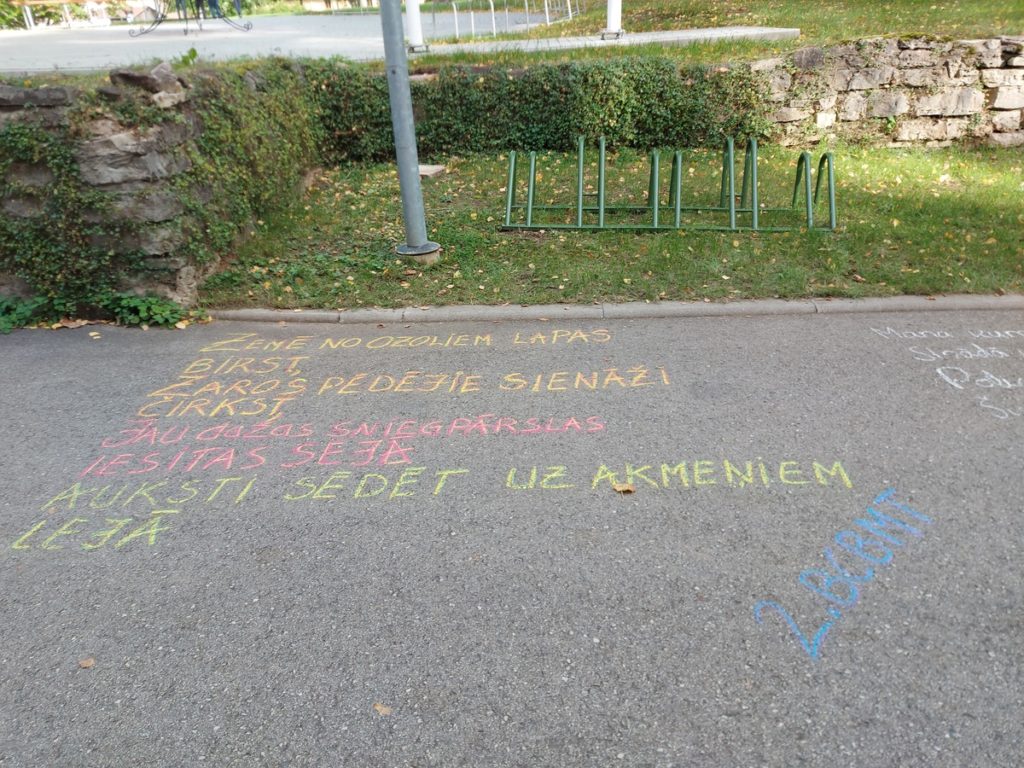 ZEMĒ NO OZOLIEM LAPAS
BIRST,
ZAROS PĒDĒJIE SIENĀŽI
ČIRKST,
JAU dažas SNIEGPĀRSLAS
IESITAS SEJĀ
AUKSTI SĒDĒT UZ AKMEŅIEM
LEJĀ
2.BCBMT
Mana